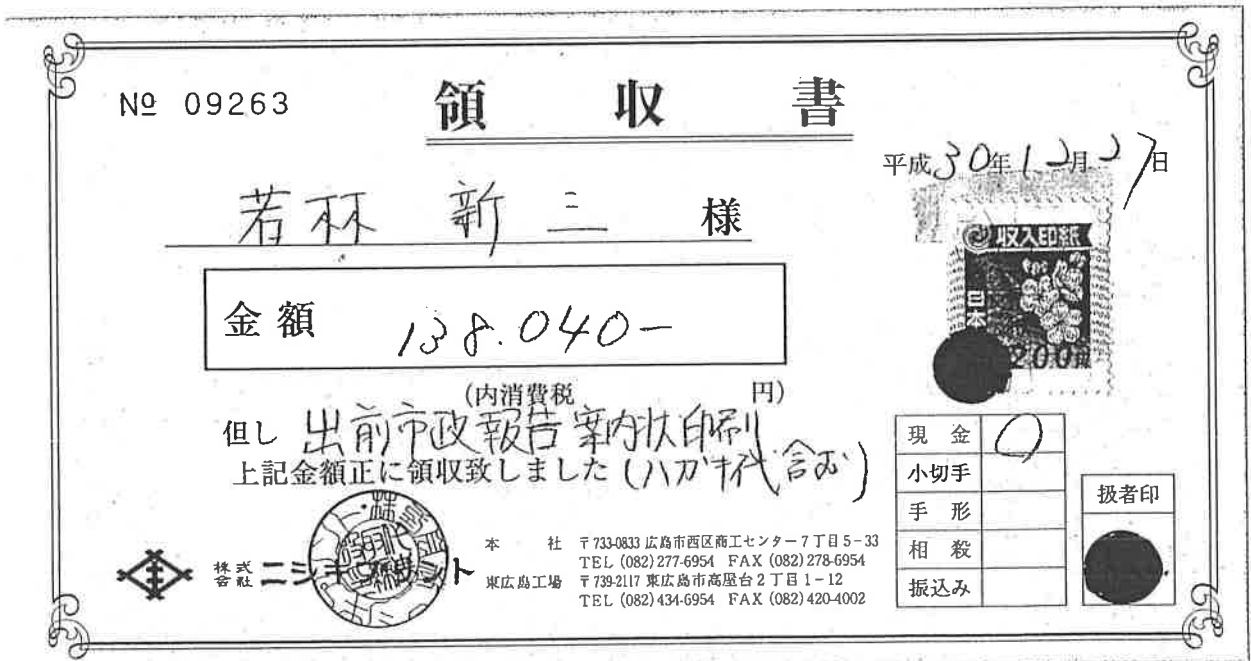 № 09263
領収書
平成30年12月27日
若林 新三 様
収入印紙
日本
200円
金額 138.040-
(内消費税 円)
但し 出前市政報告案内状印刷
上記金額正に領収致しました (ハガキ代含む)
現金 ○
小切手
手形
相殺
振込み
扱者印
株式会社 ニシキ
本社 〒733-0833 広島市西区商工センター7丁目5-33
TEL (082)277-6954 FAX (082)278-6954
東広島工場 〒739-2117 東広島市高屋台2丁目1-12
TEL (082)434-6954 FAX (082)420-4002